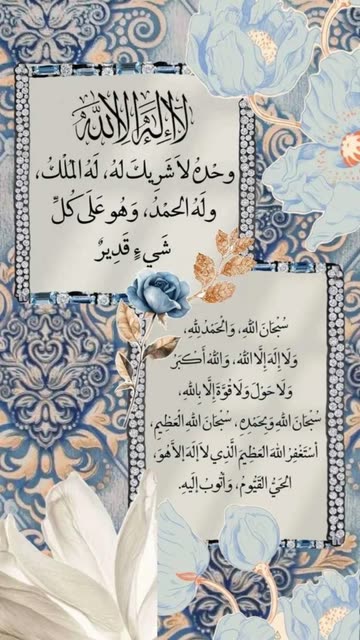 لَا إِلَهَ إِلَّا اللهُ
وَحْدَهُ لَا شَرِيكَ لَهُ، لَهُ الْمُلْكُ،
وَلَهُ الْحَمْدُ، وَهُوَ عَلَى كُلِّ
شَيْءٍ قَدِيرٌ
سُبْحَانَ اللهِ، وَالْحَمْدُ لِلهِ،
وَلَا إِلَهَ إِلَّا اللهُ، وَاللهُ أَكْبَرُ
وَلَا حَوْلَ وَلَا قُوَّةَ إِلَّا بِاللهِ،
سُبْحَانَ اللهِ وَبِحَمْدِهِ، سُبْحَانَ اللهِ الْعَظِيمِ،
أَسْتَغْفِرُ اللهَ الْعَظِيمَ الَّذِي لَا إِلَهَ إِلَّا هُوَ،
الْحَيُّ الْقَيُّومُ، وَأَتُوبُ إِلَيْهِ.